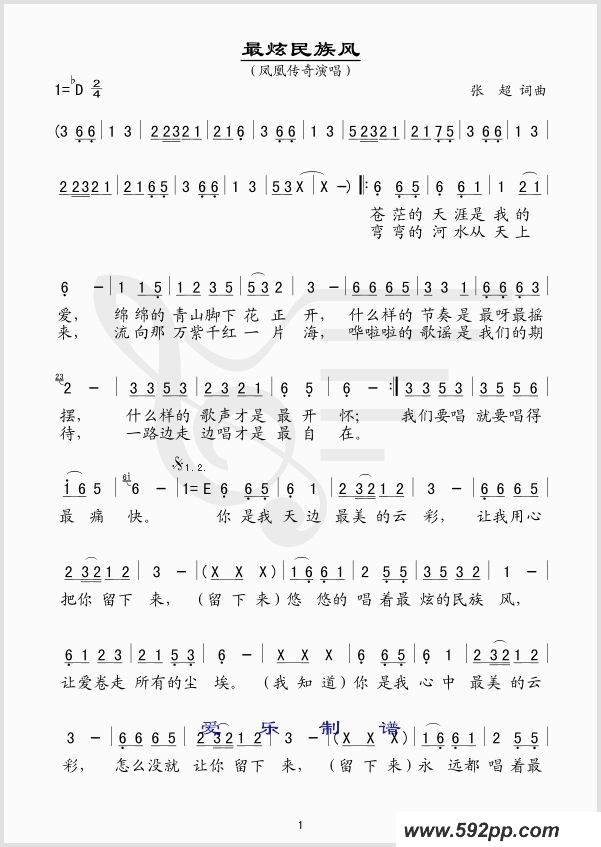 最炫民族风
（凤凰传奇演唱）
1=♭D 2/4 张 超 词曲
(3 6 6 | 1 3 | 2 2321 | 21 6 | 3 66 | 1 3 | 52321 | 2175 | 3 66 | 1 3 |
2 2321 | 2165 | 3 66 | 1 3 | 53X | X -) ‖: 6 65 | 6 61 | 1 21 |
苍 茫的 天 涯是 我 的
弯 弯的 河 水从 天 上
6 - | 1 15 | 1235 | 532 | 3 - | 3565 | 331 | 6663 |
爱， 绵绵的 青山脚下 花 正 开， 什么样的 节奏是 最呀最摇
来， 流向那 万紫千红 一 片 海， 哗啦啦的 歌谣是 我们的期
23 2 - | 3353 | 2352 | 61 | 6 5 | 6 - :‖ 3353 | 3556 |
摆， 什么样的 歌声才是 最 开 怀； 我们要唱 就要唱得
待， 一路边走 边唱才是 最 自 在。
𝄋1.2.
165 | 6 - | 1=E 6 65 | 61 | 23212 | 3 - | 6665 |
最 痛 快。 你 是我 天 边 最美的云 彩， 让我用心
2 3212 | 3 - | (X X X) | 1661 | 2 165 | 3565 | 1 - |
把你 留下 来， （留 下 来）悠 悠的 唱着最 炫的民族 风，
6123 | 2153 | 6 - | (X X X) | 6 65 | 6 1 | 2 3212 |
让爱卷走 所有的尘 埃。 （我 知 道）你 是我 心 中 最美的云
爱 乐 制 谱
3 - | 6665 | 2 3212 | 3 - | (X X X) | 1661 | 2165 |
彩， 怎么没就 让你 留下 来， （留 下 来）永 远都 唱着最
1
www.592pp.com